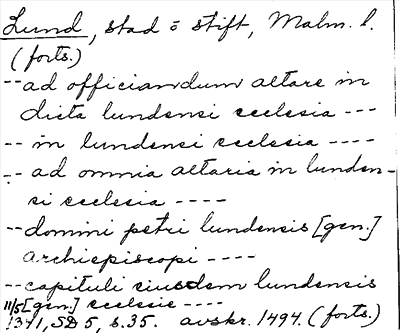 Lund, stad o stift, Malm. l.
(forts.)
-- ad officiandum altare in
dicta lundensi ecclesia ---
-- in lundensi ecclesia ----
-- ad omnia altaria in lunden-
si ecclesia ----
-- domini petri lundensis [gen.]
archiepiscopi ----
-- capituli eiusdem lundensis
11/5 [gen.] ecclesie ----
1341, SD 5, s. 35. avskr. 1494. (forts.)